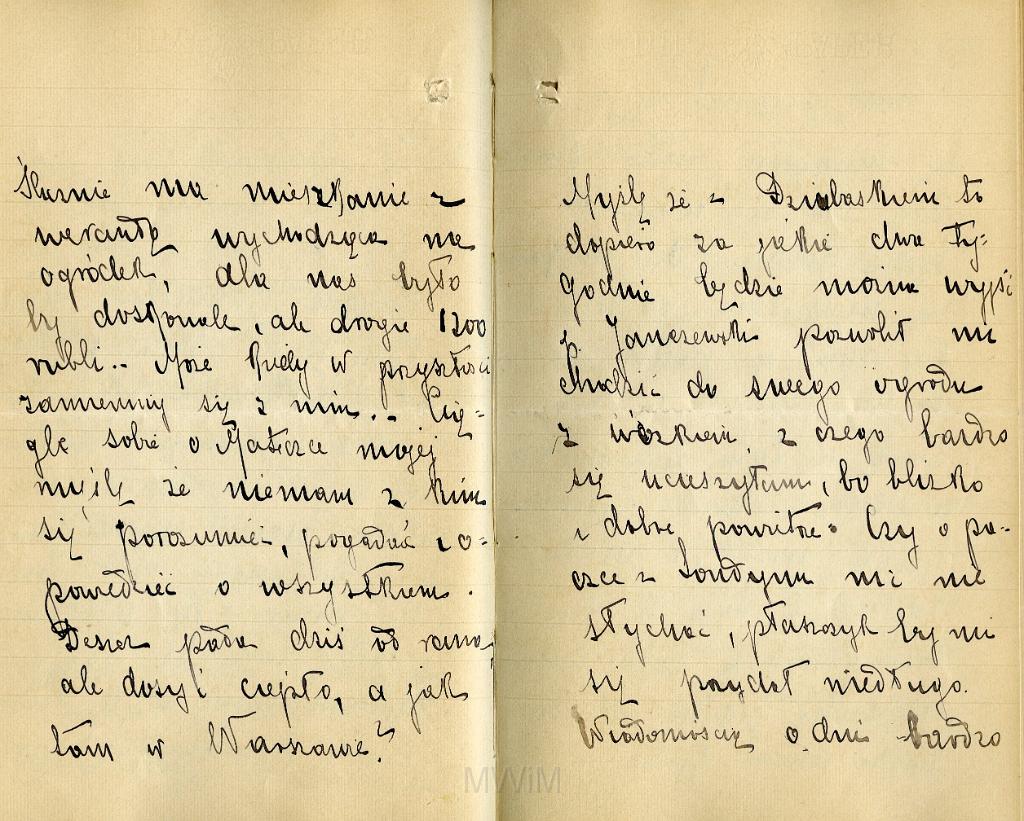 Ślicznie ma mieszkanie z
werandą wychodzącą na
ogródek, dla nas było
by doskonale, ale drogie 1200
rubli.. Może kiedy w przyszłości
zamienimy się z nim.. Cią-
gle sobie o Mateczce mojej
myślę że niemam z kim
się porozumieć, pogadać i o-
powiedzieć o wszystkiem.
Deszcz pada dziś od rana,
ale dosyć ciepło, a jak
tam w Warszawie?
Myślę że z Dziubaskiem to
dopiero za jakie dwa ty-
godnie będzie można wyjść
p. Janczewski pozwolił mi
chodzić do swego ogrodu
z wózkiem, z czego bardzo
się ucieszyłam, bo blizko
i dobre powietrze. Czy o pa-
czce z Londynu nic nie
słychać, płaszczyk by mi
się przydał niedługo.
Wiadomością o dni bardzo
MWiM